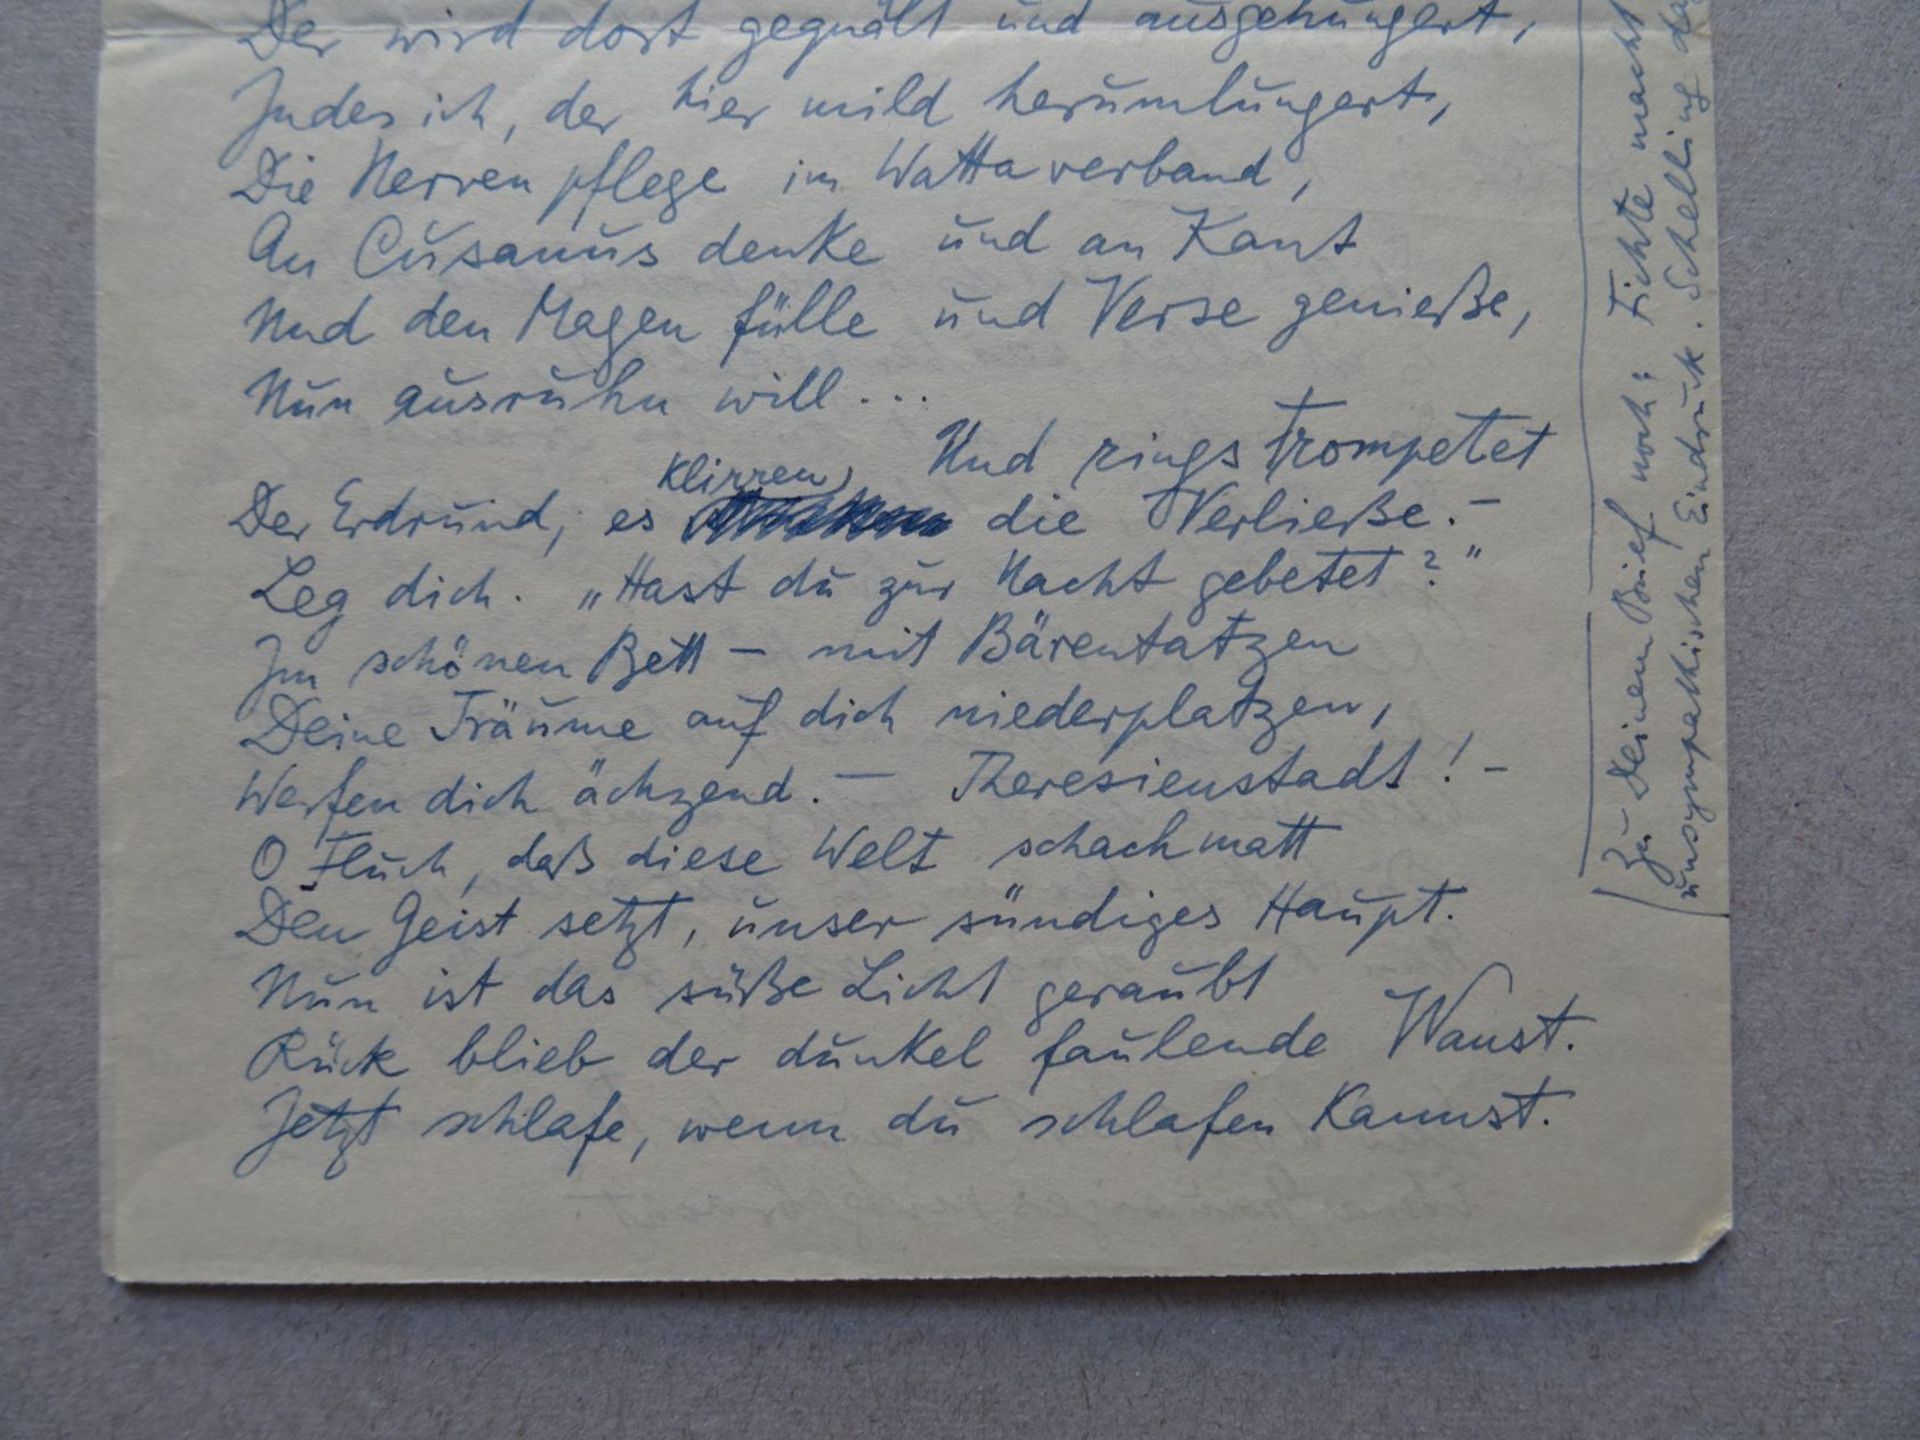 Der wird dort gequält und ausgehungert,
Indes ich, der hier mild herumlungert,
Die Nerven pflege im Watteverband,
An Cusanus denke und an Kant
Und den Magen fülle und Verse genieße,
Nun ausruhn will ...
Und rings trompetet
Der Erdrund, es klirren die Verließe. –
Leg dich. „Hast du zur Nacht gebetet?"
Im schönen Bett – mit Bärentatzen
Deine Träume auf dich niederplatzen,
Werfen dich ächzend. – Theresienstadt! –
O Fluch, daß diese Welt schachmatt
Den Geist setzt, unser sündiges Haupt.
Nun ist das süße Licht geraubt
Rück blieb der dunkel faulende Wanst.
Jetzt schlafe, wenn du schlafen kannst.
Zu Deinem Brief noch: Fichte macht
unsympathischen Eindruck. Schelling